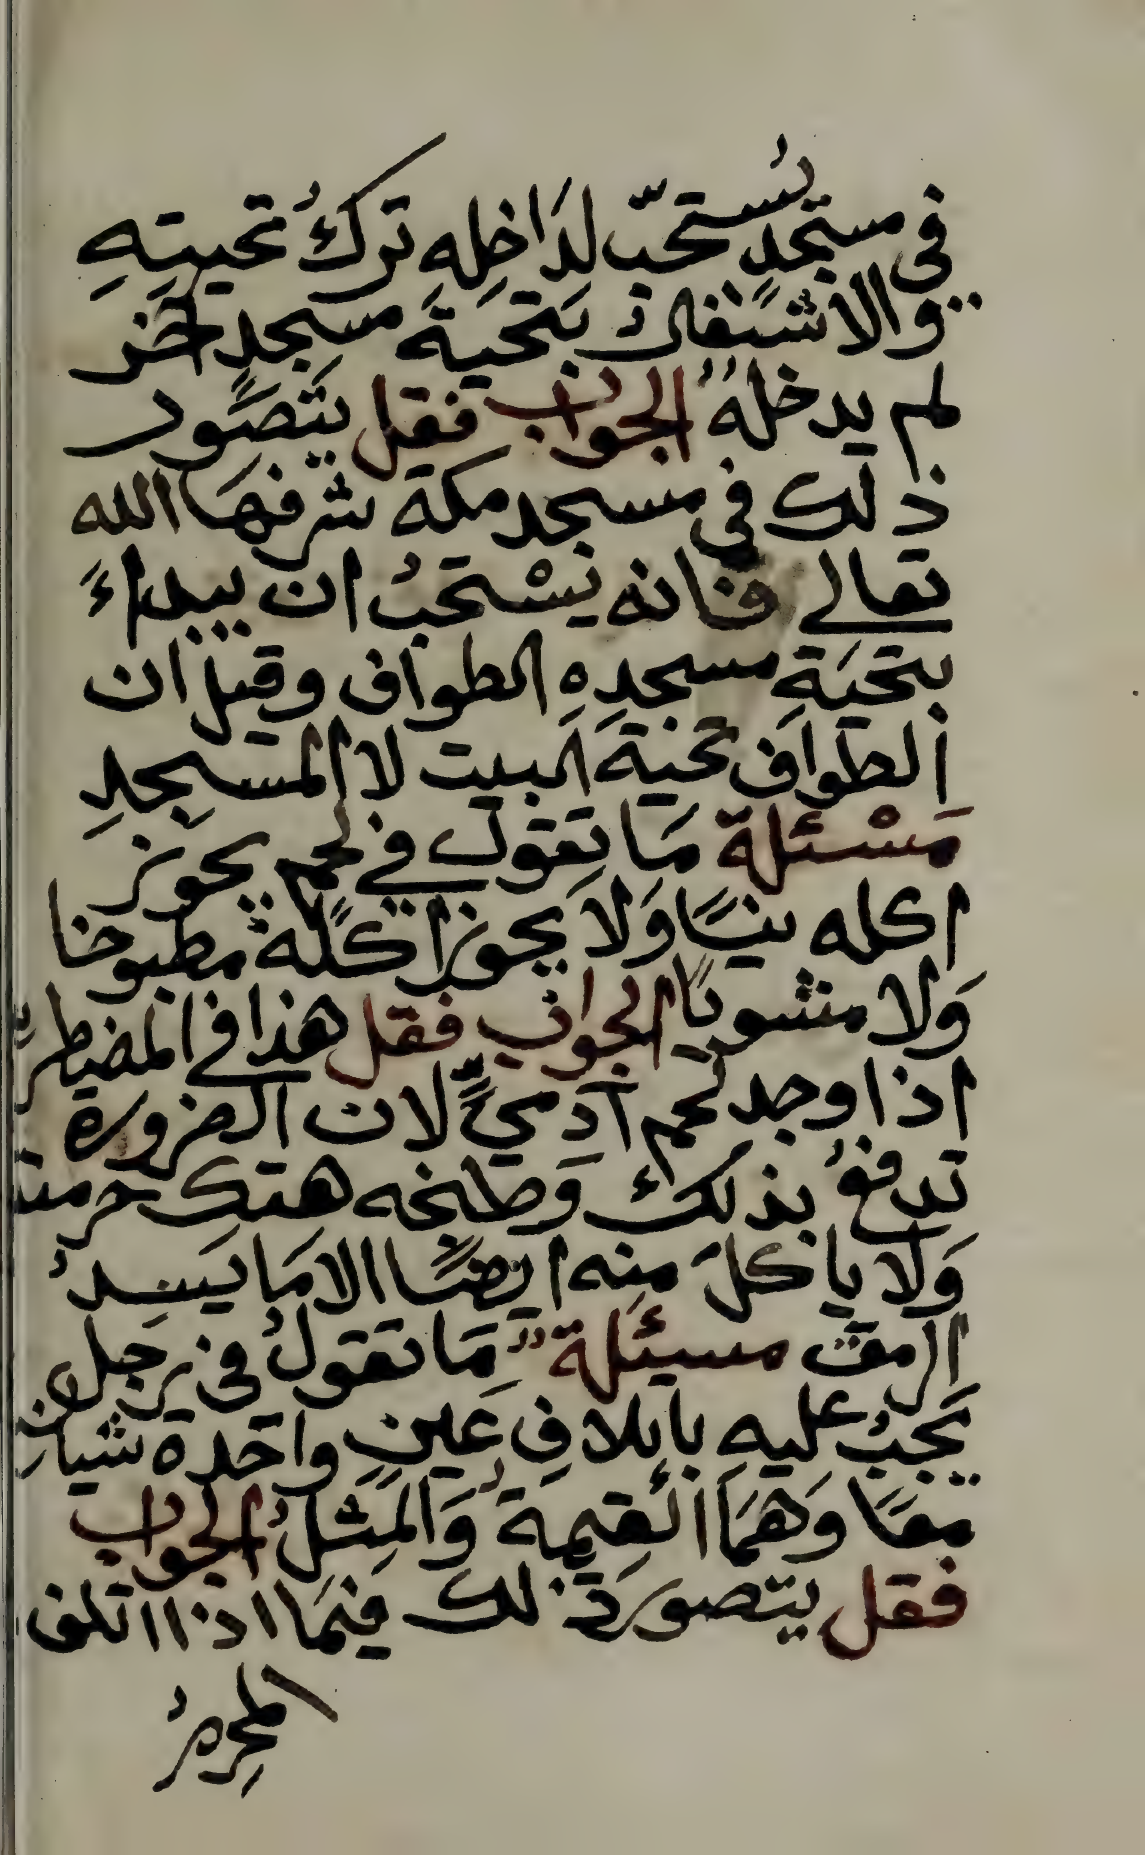 في مسجدٍ يُستحبّ لدَاخِلِهِ تركُ تحيتِهِ
والاشتغال بتحيَةَ مسجدٍ اخر
لم يدخلهُ الجواب فقل يتَصَور
ذلك في مسجد مكة شرفهَا الله
تعالي فانه يسْتحبُ ان يبداءَ
بتحيَةِ مسجدِهِ الطواف وقيل ان
الطوَاف تحية البيت لا المسجِدِ
مَسْئلة مَا تقول في لحم يجوز
اكله نيًا وَلا يجوز اكله مطبوخا
وَلا مشويًا الجواب فقل هذا في المضطر
اذا وجد لحم آدميٍّ لان الضرورة
تدفعُ بذلك وَطبخه هتك حرمته
وَلا ياكلَ منِه ايضًا الا مَا يَسدُ
الرمق مسيئلة مَا تقولُ في رجل
يجبُ عليهِ باتلافِ عَينٍ واحَدة شيانِ
معًا وَهمَا القيمةُ وَالمِثلُ الجواب
فقل يتصور ذلك فيمَا اذا اتلف
المحرمُ